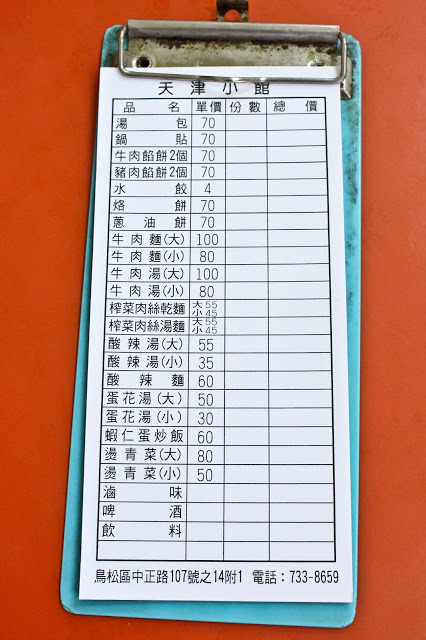 天津小館
品名 單價 份數 總價
湯包 70
鍋貼 70
牛肉餡餅2個 70
豬肉餡餅2個 70
水餃 4
烙餅 70
蔥油餅 70
牛肉麵(大) 100
牛肉麵(小) 80
牛肉湯(大) 100
牛肉湯(小) 80
榨菜肉絲乾麵 大55 小45
榨菜肉絲湯麵 大55 小45
酸辣湯(大) 55
酸辣湯(小) 35
酸辣麵 60
蛋花湯(大) 50
蛋花湯(小) 30
蝦仁蛋炒飯 60
燙青菜(大) 80
燙青菜(小) 50
滷味
啤酒
飲料
鳥松區中正路107號之14附1 電話：733-8659